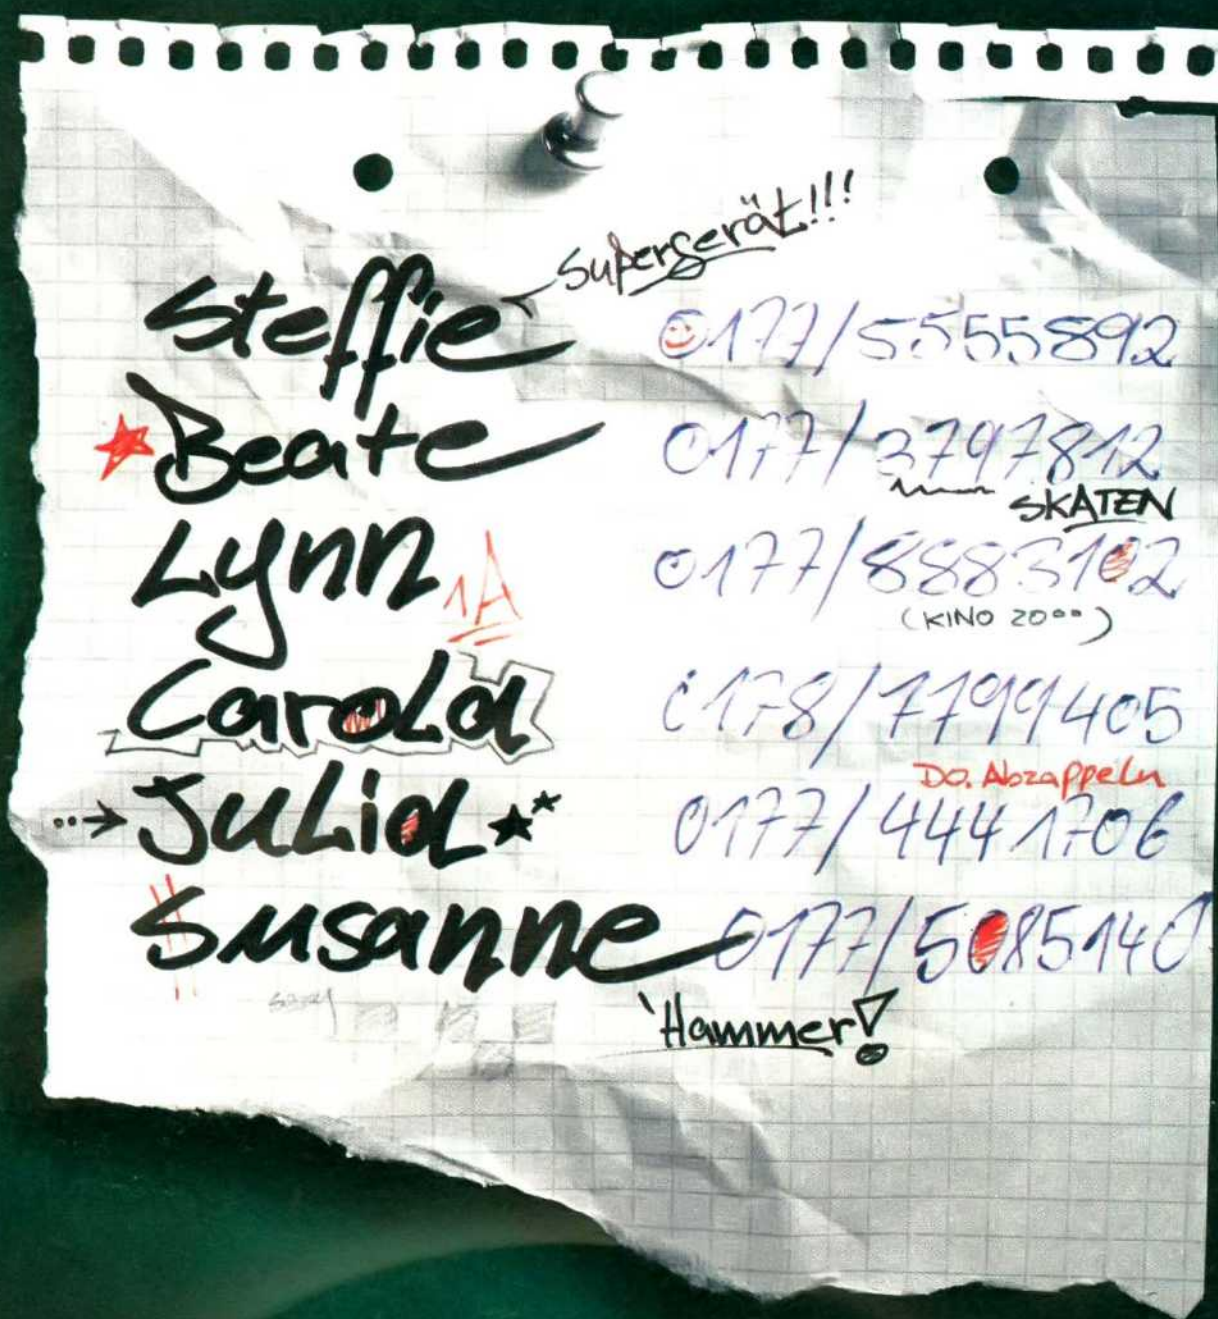 Supergerät!!!
Steffie 0177/5555892
Beate 0177/3797812
SKATEN
Lynn 1A 0177/8883102
(KINO 20⁰⁰)
Carola 0178/7799405
Do. Abzappeln
Julia 0177/4441706
Susanne 0177/5085140
Hammer!